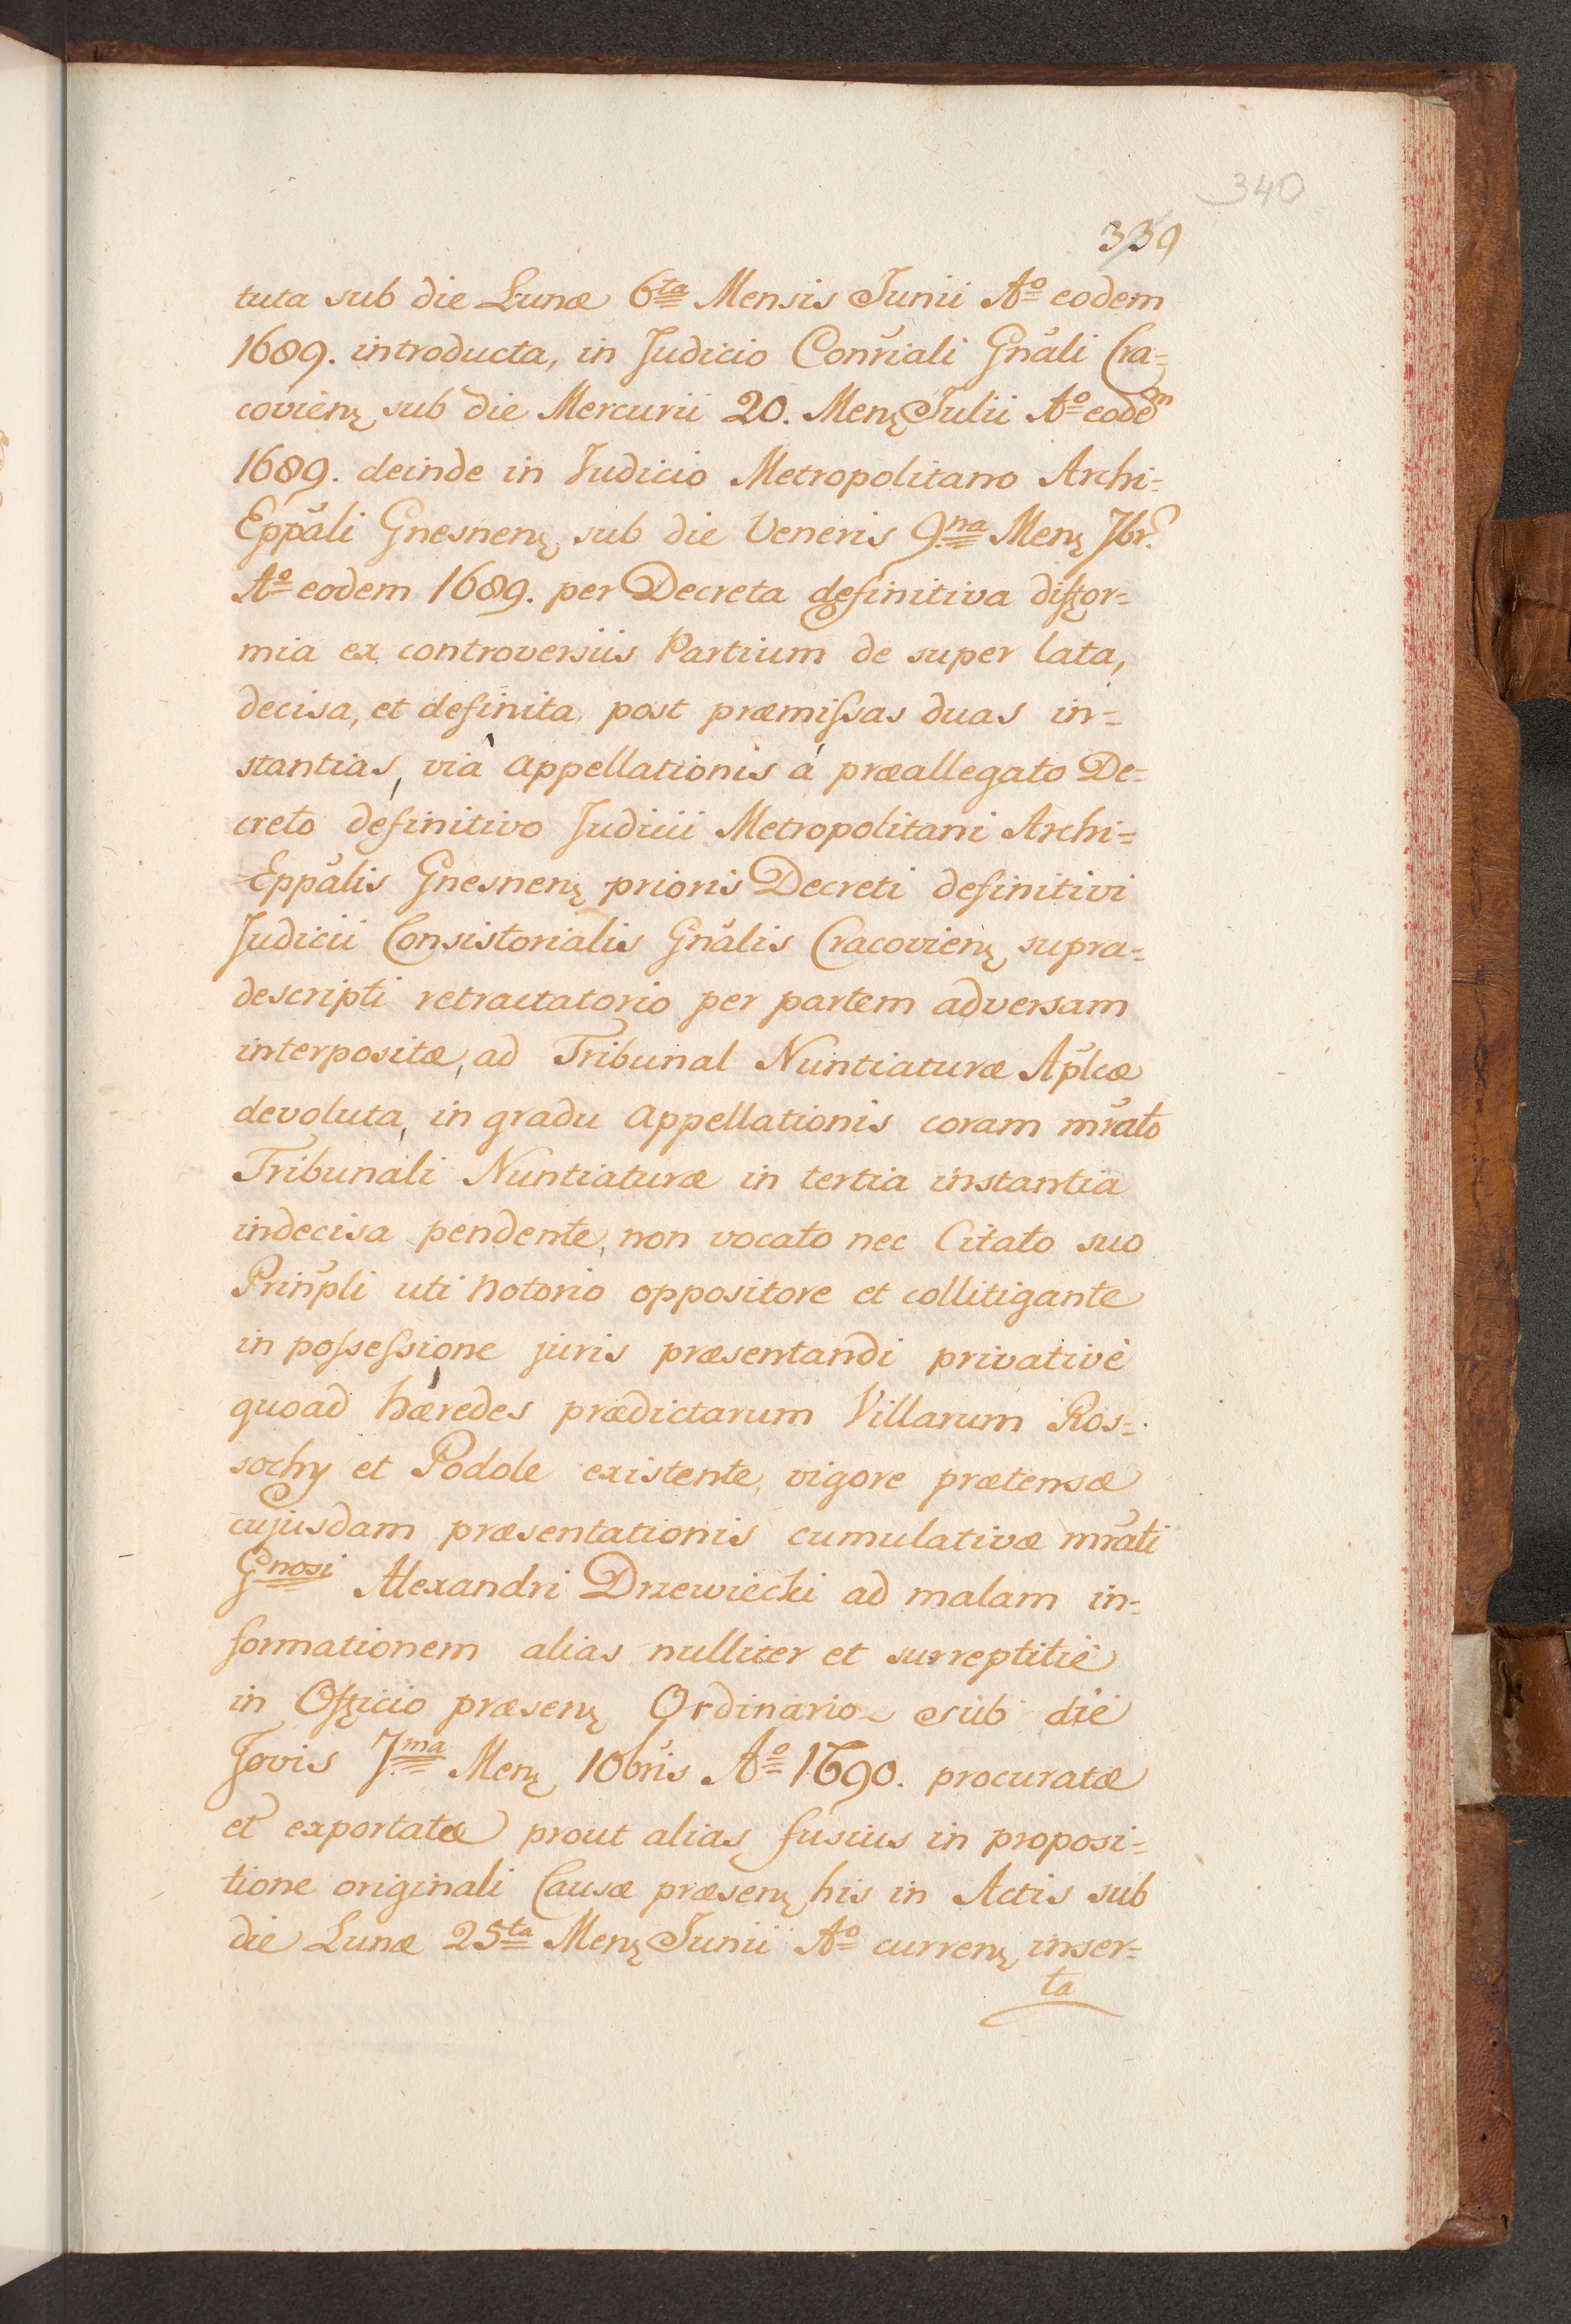 340
339
tuta sub die Lunæ 6ta Mensis Junii Aº eodem
1689. introducta, in Judicio Conrĩali Gnãli Cra=
covien̨ sub die Mercurii 20. Men̨ Julii Aº eodem
1689. deinde in Judicio Metropolitano Archi=
Eppãli Gnesnen̨ sub die Veneris 9.na Men̨ 7br̃
Aº eodem 1689. per Decreta definitiva diffor=
mia ex controversiis Partium de super lata,
decisa, et definita, post præmissas duas in=
stantias, viâ appellationis à præallegato De=
creto definitivo Judicii Metropolitani Archi=
=Eppãlis Gnesnen̨ prioris Decreti definitivi
Judicii Consistorialis Gnãlis Cracovien̨ supra=
descripti retractatorio per partem adversam
interpositæ, ad Tribunal Nuntiaturæ Aplcæ
devoluta, in gradu appellationis coram mrãto
Tribunali Nuntiaturæ in tertia instantia
indecisa pendente, non vocato nec Citato suo
Prinp̃li uti notorio oppositore et collitigante
in possessione juris præsentandi privativè
quoad hæredes prædictarum Villarum Ros=
sochy et Podole existente, vigore prætensæ
cujusdam præsentationis cumulativæ mrãti
Gnosi Alexandri Drzewiecki ad malam in=
formationem alias nulliter et surreptitiè
in Officio præsen̨ Ordinario sub die
Jovis 7.ma Men̨ 10brĩs Aº 1690. procuratæ
et exportatæ prout alias fusius in proposi=
tione originali Causæ præsen̨ his in Actis sub
die Lunæ 25ta Men̨ Junii Aº curren̨ inser=
ta